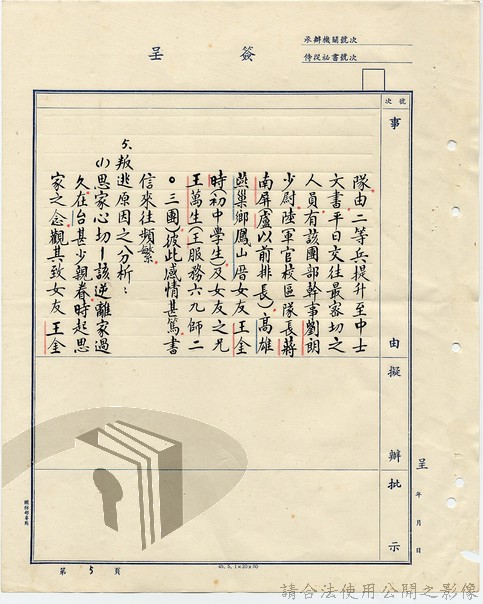 承辦機關號次
侍從祕書號次
簽呈
號次
事由
擬辦
批示
呈
年月日
隊由二等兵提升至中士
文書平日交往最密切之
人員有該團部幹事劉朗
少尉陸軍官校區隊長蔣
南屏盧以前排長)高雄
燕巢鄉鳳山厝女友王金
時(初中學生)及女友之兄
王萬生(王服務六九師二
〇三團)彼此感情甚篤書
信來往頻繁。
5.叛逃原因之分析：
(1)思家心切—該逆離家過
久在台甚少親眷時起思
家之念觀其致女友王金
第5頁
45.5.1×20×50
請合法使用公開之影像